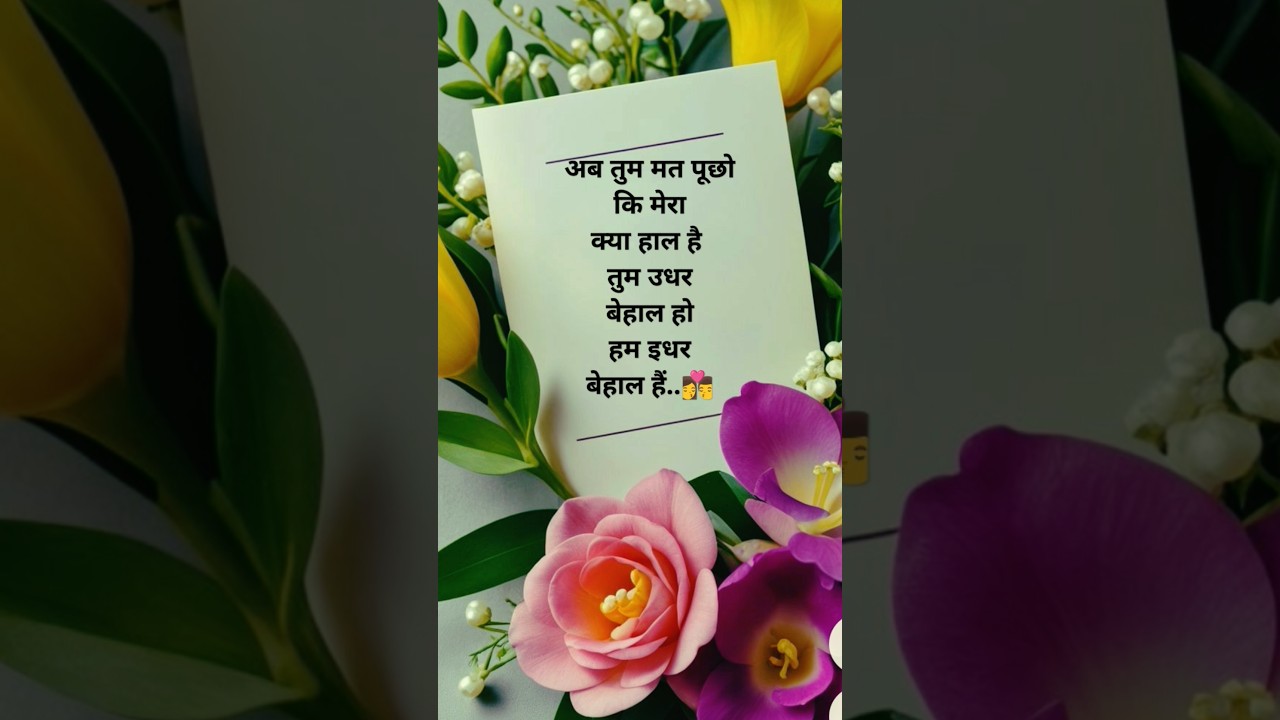 अब तुम मत पूछो
कि मेरा
क्या हाल है
तुम उधर
बेहाल हो
हम इधर
बेहाल हैं..💏